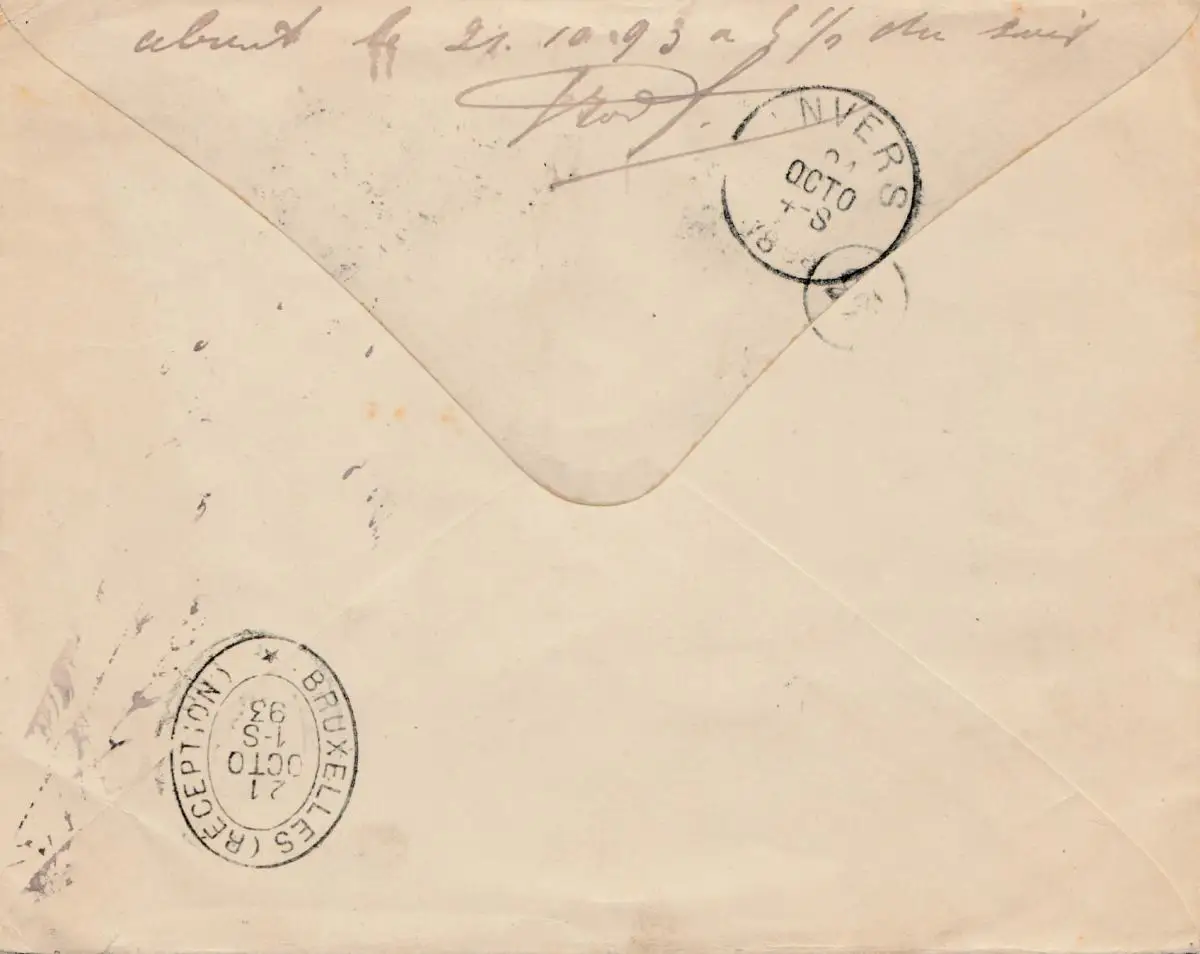 absent le 21.10.93 a 5 ½ du soir
NVERS
OCTO
4-S
BRUXELLES (RÉCEPTION)
21
OCTO
1-S
93